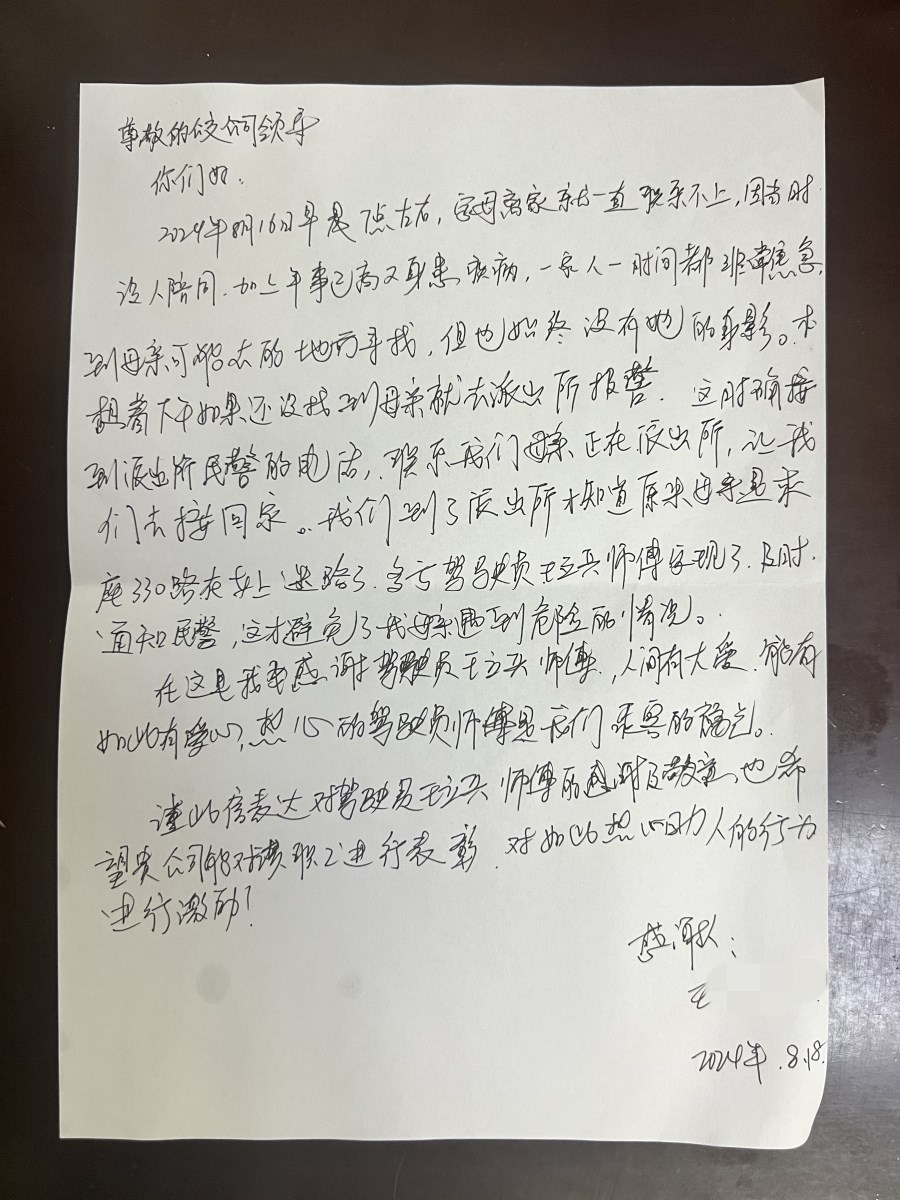 尊敬的公交公司领导
你们好:
2024年8月16日早晨7点左右,家母离家后就一直联系不上,因当时
没人陪同.加上年事已高又身患疾病,一家人一时间都非常焦急,
到母亲可能去的地方寻找,但也始终没有她的身影。本
想着下午如果还没找到母亲就去派出所报警.这时候接
到派出所民警的电话,联系我们母亲正在派出所,让我
们去接回家。我们到了派出所才知道原来母亲是乘
座330路在车上迷路了.多亏驾驶员王立兵师傅发现了.及时.
通知民警,这才避免了我母亲遇到危险的情况。
在这里我要感谢驾驶员王立兵师傅.,人间有大爱.能有
如此有爱心,热心的驾驶员师傅是我们乘客的福气。
谨此信表达对驾驶员王立兵师傅的感谢及敬意,也希
望贵公司能对该职工进行表彰.对如此热心助人的行为
进行激励!
感谢人:
王
2024年.8.18.